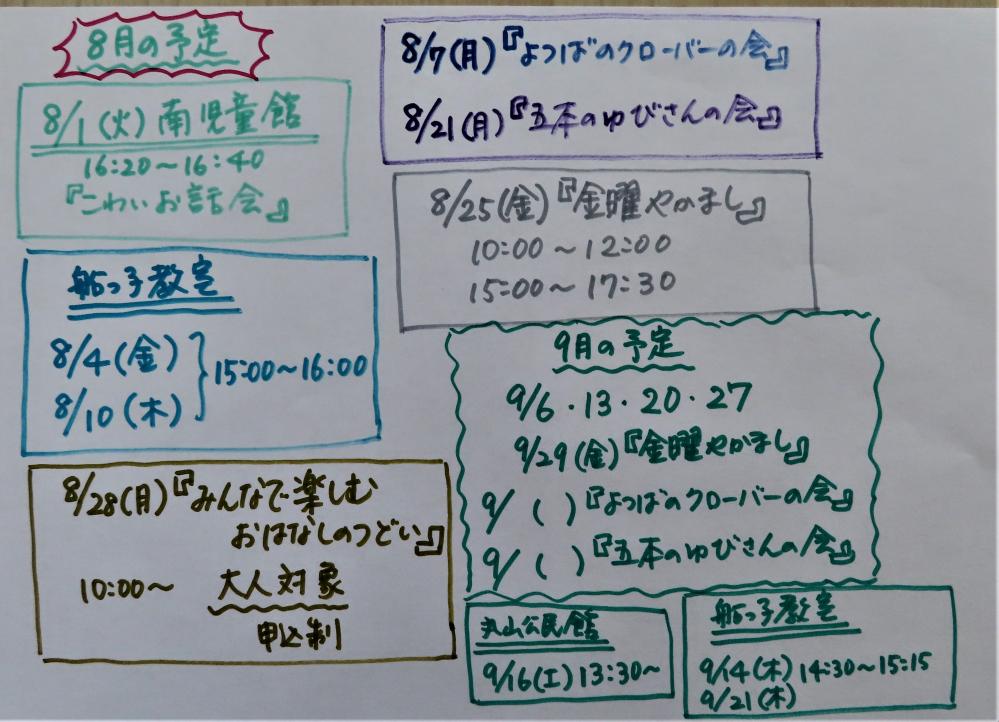 8月の予定
8/1(火)南児童館
16:20〜16:40
『こわいお話会』
船っ子教室
8/4(金)
8/10(木)
15:00〜16:00
8/28(月)『みんなで楽しむ
おはなしのつどい』
10:00〜 大人対象
申込制
8/7(月)『よつばのクローバーの会』
8/21(月)『五本のゆびさんの会』
8/25(金)『金曜やかまし』
10:00〜12:00
15:00〜17:30
9月の予定
9/6・13・20・27
9/29(金)『金曜やかまし』
9/ ( )『よつばのクローバーの会』
9/ ( )『五本のゆびさんの会』
丸山公民館
9/16(土)13:30〜
船っ子教室
9/14(木)14:30〜15:15
9/21(木)